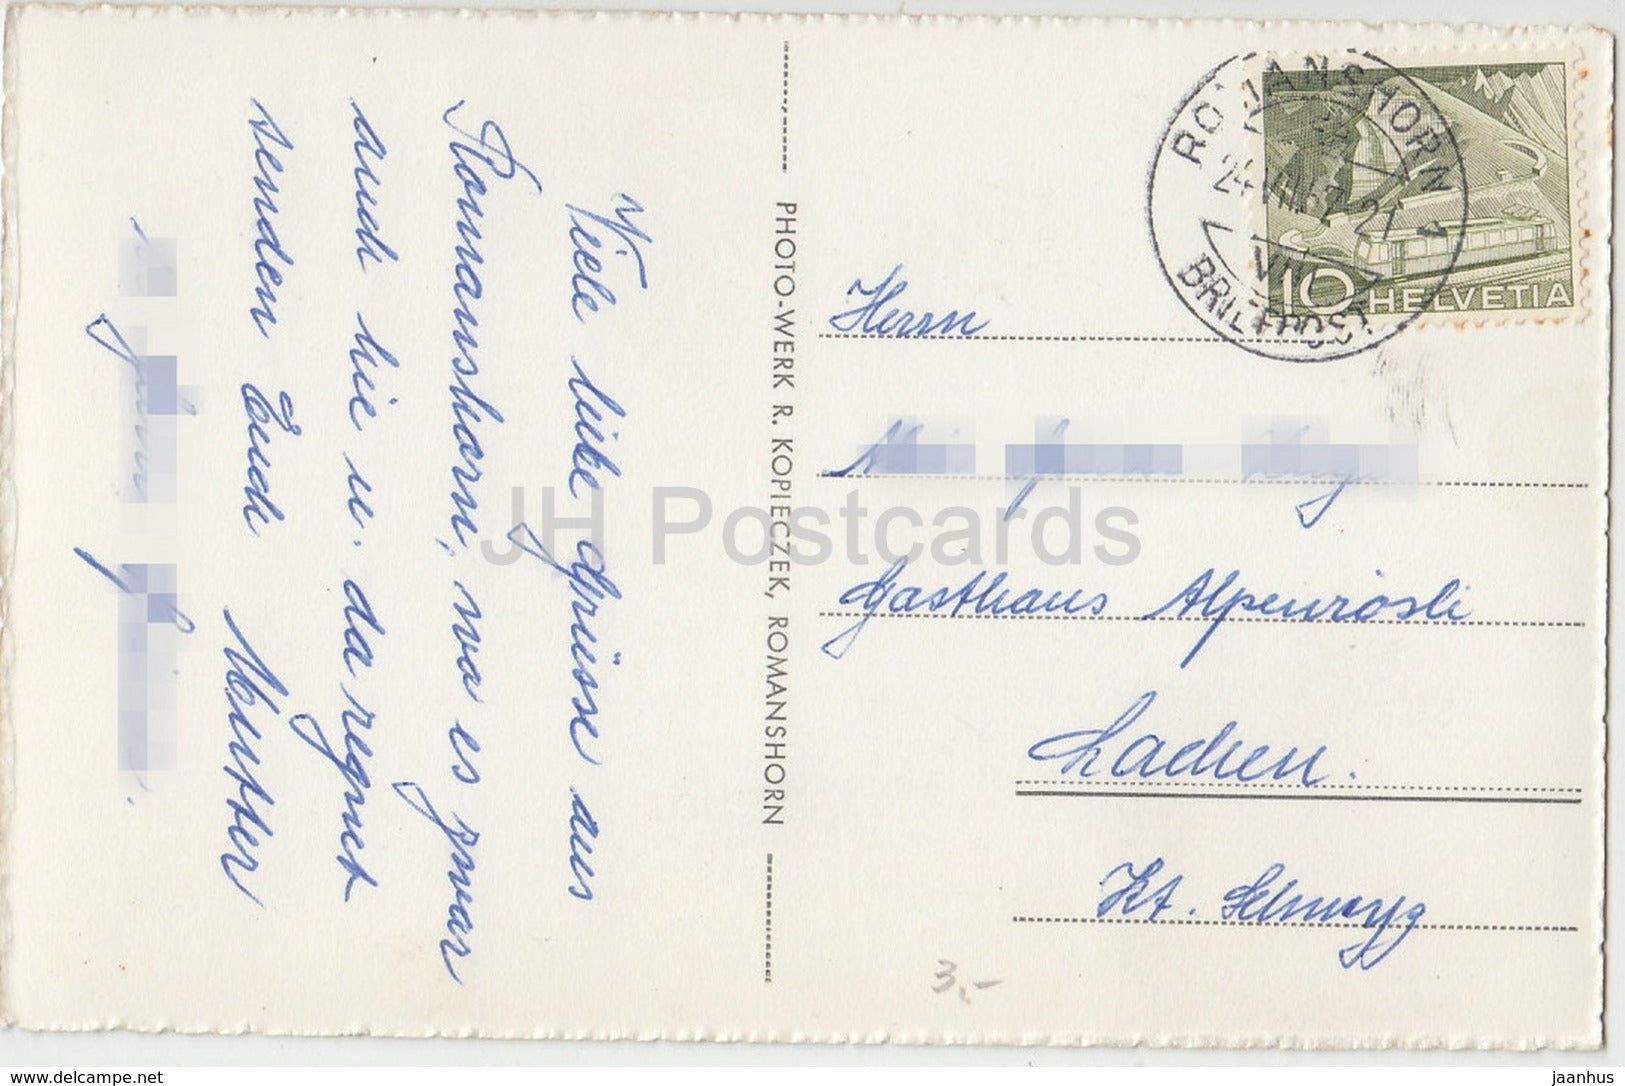 Viele liebe Grüsse aus
Romanshorn, wo es zwar
auch hie u. da regnet
senden Euch Mutter
PHOTO-WERK R. KOPIECZEK, ROMANSHORN
ROMANSHORN
24. VIII. 62 21
BRIEFPOST
10 HELVETIA
Herrn
Gasthaus Alpenrösli
Lachen.
Kt. Schwyz
3.-
JH Postcards
delcampe.net
jaanhus